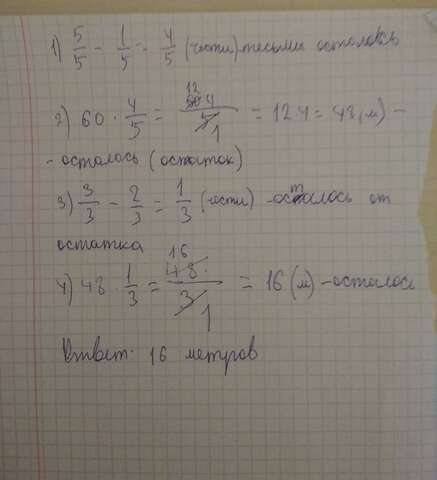 1) 5/5 - 1/5 = 4/5 (части) тесьмы осталось
2) 60 · 4/5 = 60·4/5 = 12·4 = 48 (м) -
- осталось (остаток)
3) 3/3 - 2/3 = 1/3 (части) - осталось от
остатка
4) 48 · 1/3 = 48·/3 = 16 (м) - осталось
Ответ: 16 метров